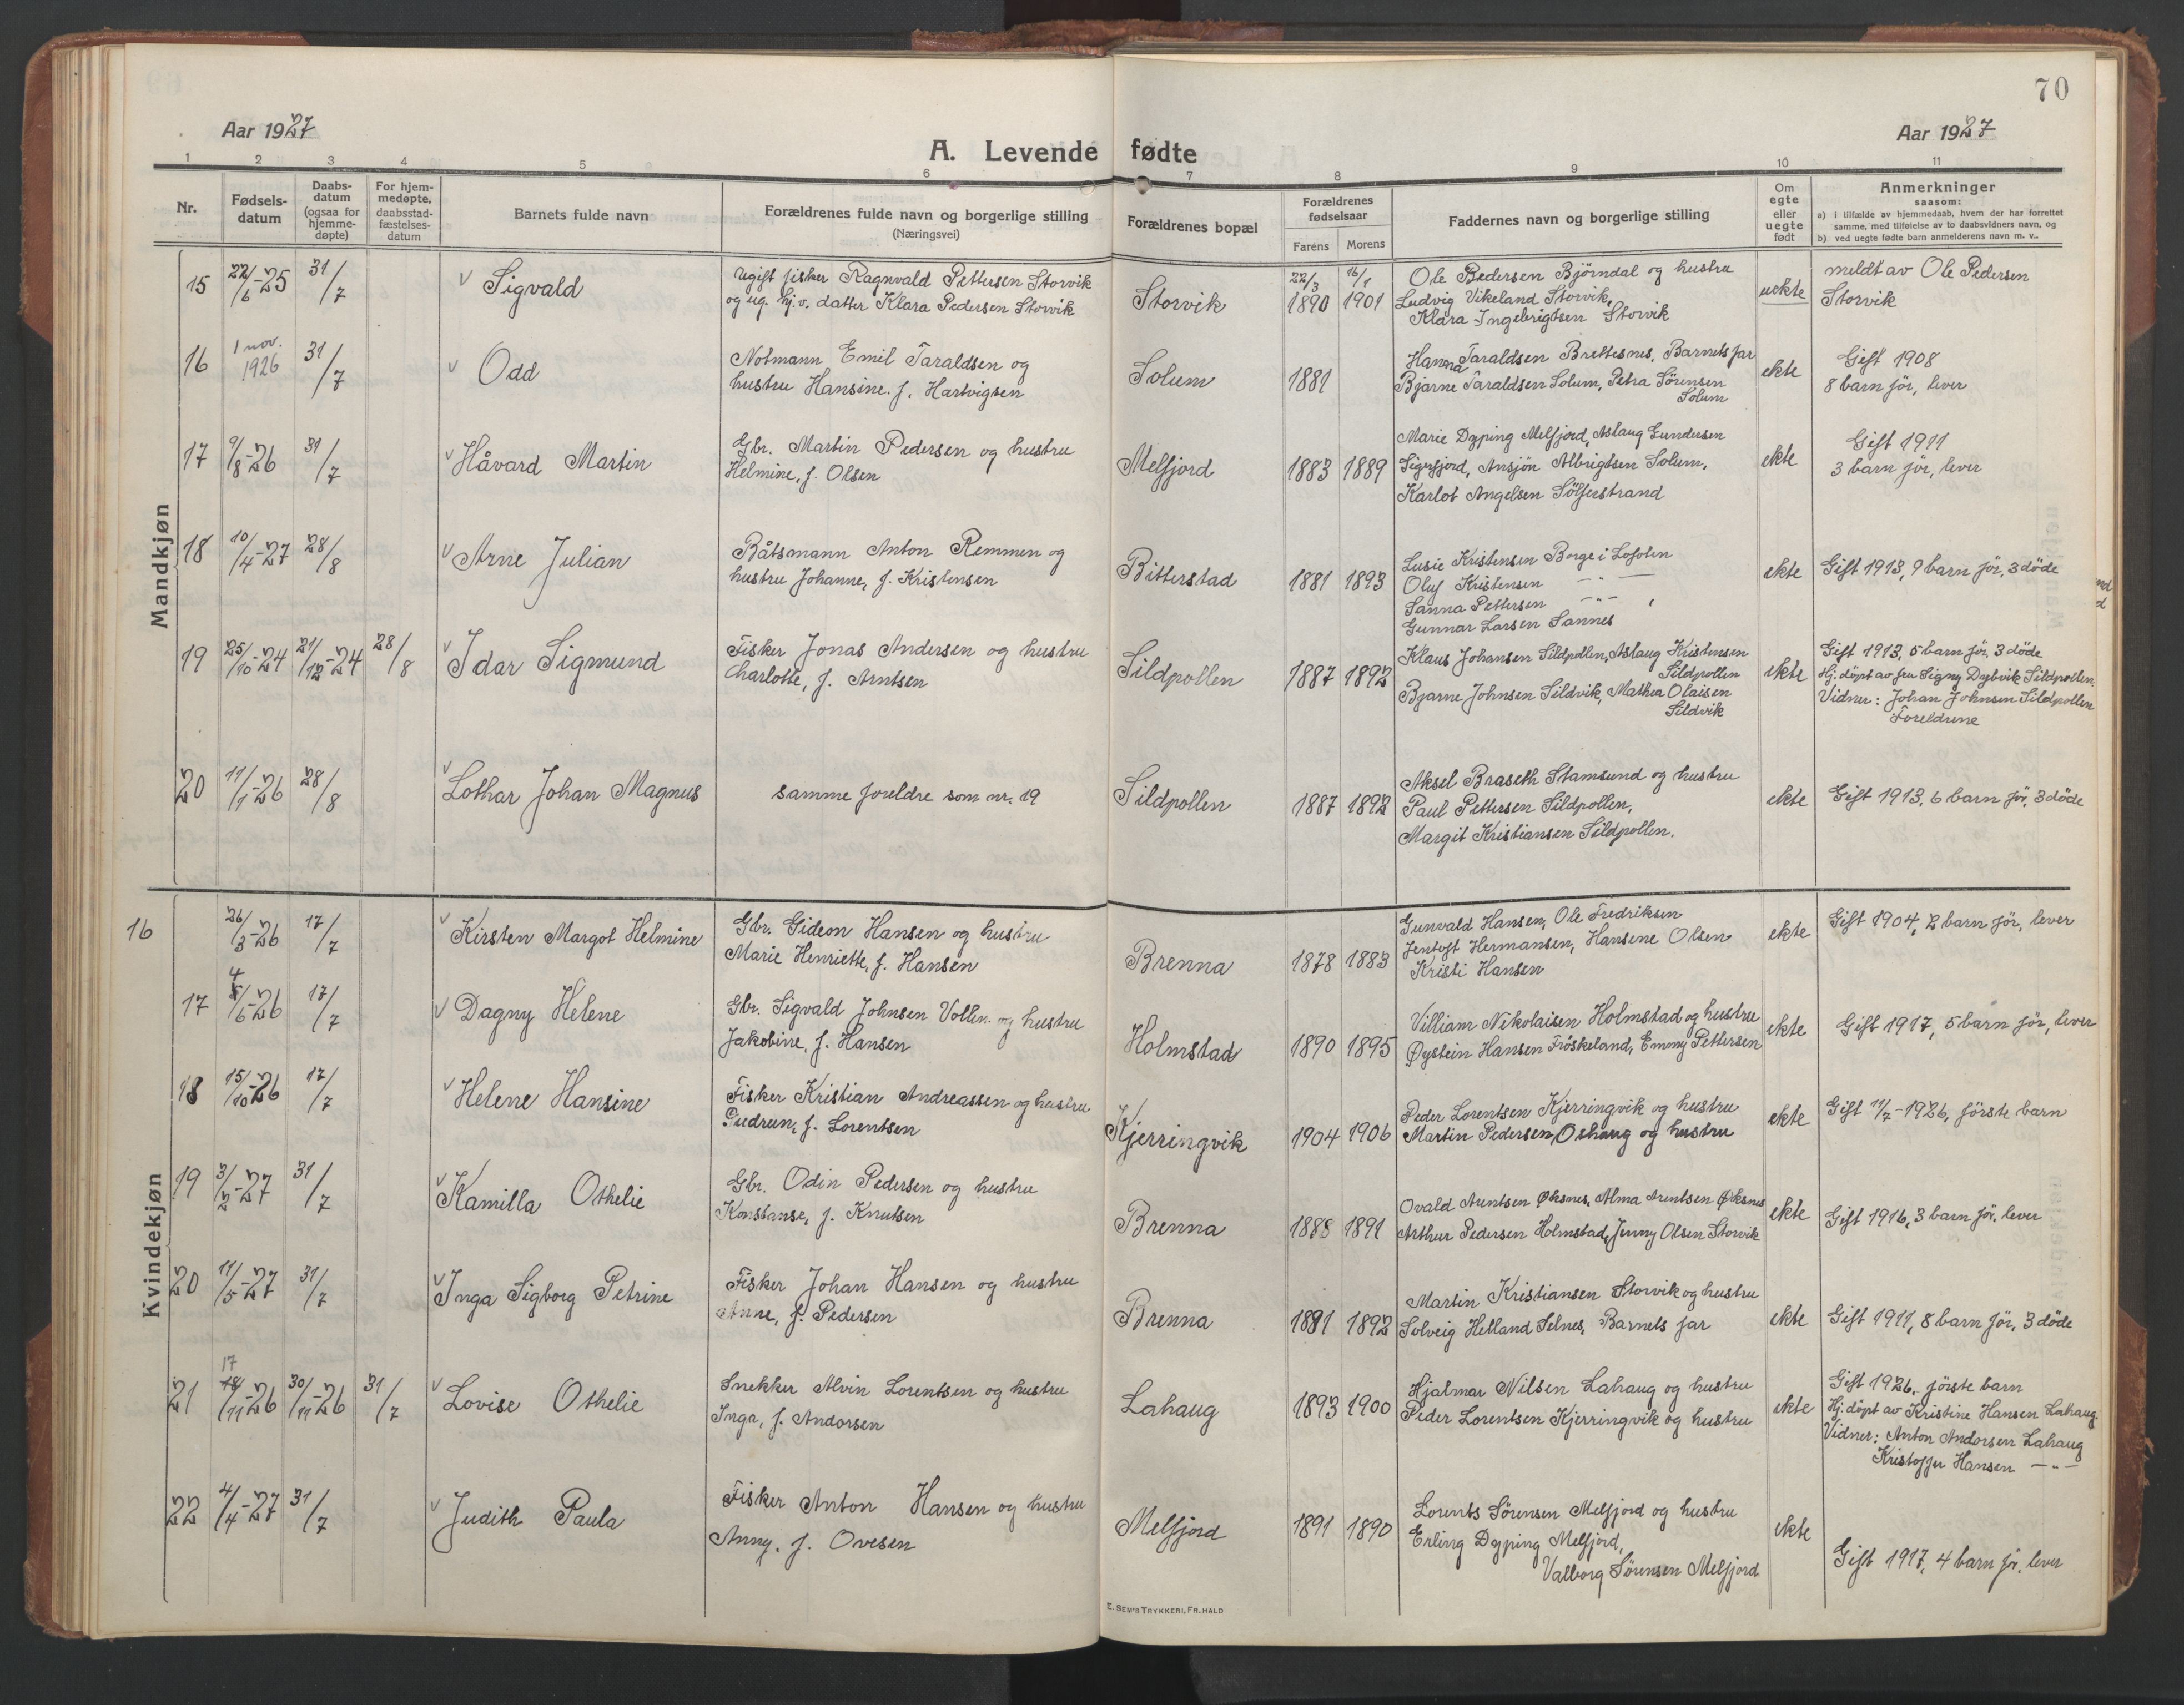 70
Aar 1927
Aar 1927
A. Levende fødte
1 2 3 4 5 6 7 8 9 10 11
Nr.
Fødsels-
datum
Daabs-
datum
(ogsaa for
hjemme-
døpte)
For hjem-
medøpte,
daabsstad-
fæstelses-
datum
Barnets fulde navn
Forældrenes fulde navn og borgerlige stilling
(Næringsvei)
Forældrenes bopæl
Forældrenes
fødselsaar
Farens Morens
Faddernes navn og borgerlige stilling
Om
egte
eller
uegte
født
Anmerkninger
saasom:
a) i tilfælde av hjemmedaab, hvem der har forrettet
samme, med tilføielse av to daabsvidners navn, og
b) ved uegte fødte barn anmelderens navn m. v..
Mandkjøn
15 22/6-25 31/7 v Sigvald
Ugift fisker Ragnvald Pettersen Storvik
og ug. hj.v. datter Klara Pedersen Storvik
Storvik
22/3 1890 16/1 1901
Ole Pedersen Bjørndal og hustru
Ludvig Vikeland Storvik,
Klara Ingebrigtsen Storvik
uekte
meldt av Ole Pedersen
Storvik
16 1 nov. 1926 31/7 v Odd
Notmann Emil Taraldsen og
hustru Hansine. f. Hartvigsen
Solum
1881
Hanna Taraldsen Brettesnes, Barnets far
Bjarne Taraldsen Solum, Petra Sørensen
Solum
ekte
Gift 1908
8 barn før, lever
17 9/8-26 31/7 v Håvard Martin
Gbr. Martin Pedersen og hustru
Helmine, f. Olsen
Melfjord
1883 1889
Marie Dyping Melfjord, Aslaug Gundersen
Sigerfjord, Ansjön Albrigtsen Solum,
Karlot Angelsen Sölferstrand
ekte
Gift 1911
3 barn før, lever
18 10/4-27 28/8 v Arne Julian
Båtsmann Anton Remmen og
hustru Johanne, f. Kristensen
Bitterstad
1881 1893
Lusie Kristensen Borge i Lofoten
Oluf Kristensen —"—
Sanna Pettersen —"—
Gunnar Larsen Sannes
ekte
Gift 1913, 9 barn før, 3 döde
19 25/10-24 21/12-24 28/8 v Idar Sigmund
Fisker Jonas Andersen og hustru
Charlotte, f. Arntsen
Sildpollen
1887 1892
Klaus Johansen Sildpollen, Aslaug Kristensen
Sildpollen
Bjarne Johnsen Sildvik, Mathea Olaisen
Sildvik
ekte
Gift 1913, 5 barn før. 3 döde
Hj. döpt av fru Signy Dybvik Sildpollen.
Vidner: Johan Johnsen Sildpollen
Foreldrene
20 11/1-26 28/8 v Lothar Johan Magnus
samme foreldre som nr. 19
Sildpollen
1887 1892
Aksel Braseth Stamsund og hustru
Paul Pettersen Sildpollen,
Margit Kristiansen Sildpollen.
ekte
Gift 1913, 6 barn før, 3 döde
Kvindekjøn
16 26/3-26 17/7 v Kirsten Margot Helmine
Gbr. Gideon Hansen og hustru
Marie Henriette, f. Hansen
Brenna
1878 1883
Gunvald Hansen, Ole Fredriksen
Jentoft Hermansen, Hansine Olsen
Kristi Hansen
ekte
Gift 1904, 8 barn før, lever
17 4/6-26 17/7 v Dagny Helene
Gbr. Sigvald Johnsen Vollen og hustru
Jakobine, f. Hansen
Holmstad
1890 1895
Villiam Nikolaisen Holmstad og hustru
Øystein Hansen Fröskeland, Emmy Pettersen
ekte
Gift 1917, 5 barn før, lever
18 15/10-26 17/7 v Helene Hansine
Fisker Kristian Andreassen og hustru
Gudrun, f. Lorentsen
Kjerringvik
1904 1906
Peder Lorentsen Kjerringvik og hustru
Martin Pedersen, Oshaug og hustru
ekte
Gift 11/7-1926, förste barn
19 3/2-27 31/7 v Kamilla Othelie
Gbr. Odin Pedersen og hustru
Konstanse, f. Knutsen
Brenna
1888 1891
Ovald Arntsen Øksnes, Alma Arentsen Øksnes
Arthur Pedersen Holmstad, Jenny Olsen Storvik
ekte
Gift 1916, 3 barn før. lever
20 11/5-27 31/7 v Inga Sigborg Petrine
Fisker Johan Hansen og hustru
Anne, f. Pedersen
Brenna
1891 1892
Martin Kristiansen Storvik og hustru
Solveig Helland Selnes, Barnets far
ekte
Gift 1911, 8 barn før, 3 döde
21 17/11-26 30/11-26 31/7 v Lovise Othelie
Snekker Alvin Lorentsen og hustru
Inga, f. Andorsen
Lahaug
1893 1900
Hjalmar Nilsen Lahaug og hustru
Peder Lorentsen Kjerringvik og hustru
ekte
Gift 1926, förste barn
Hj. döpt av Kristine Hansen Lahaug.
Vidner: Anton Andorsen Lahaug
Kristoffer Hansen —"—
22 4/4-27 31/7 v Judith Paula
Fisker Anton Hansen og hustru
Anny. f. Ovesen
Melfjord
1891 1890
Lorents Sørensen Melfjord og hustru
Erling Dyping Melfjord,
Valborg Sørensen Melfjord
ekte
Gift 1917, 4 barn før. lever
E. SEM'S TRYKKERI, FR.HALD